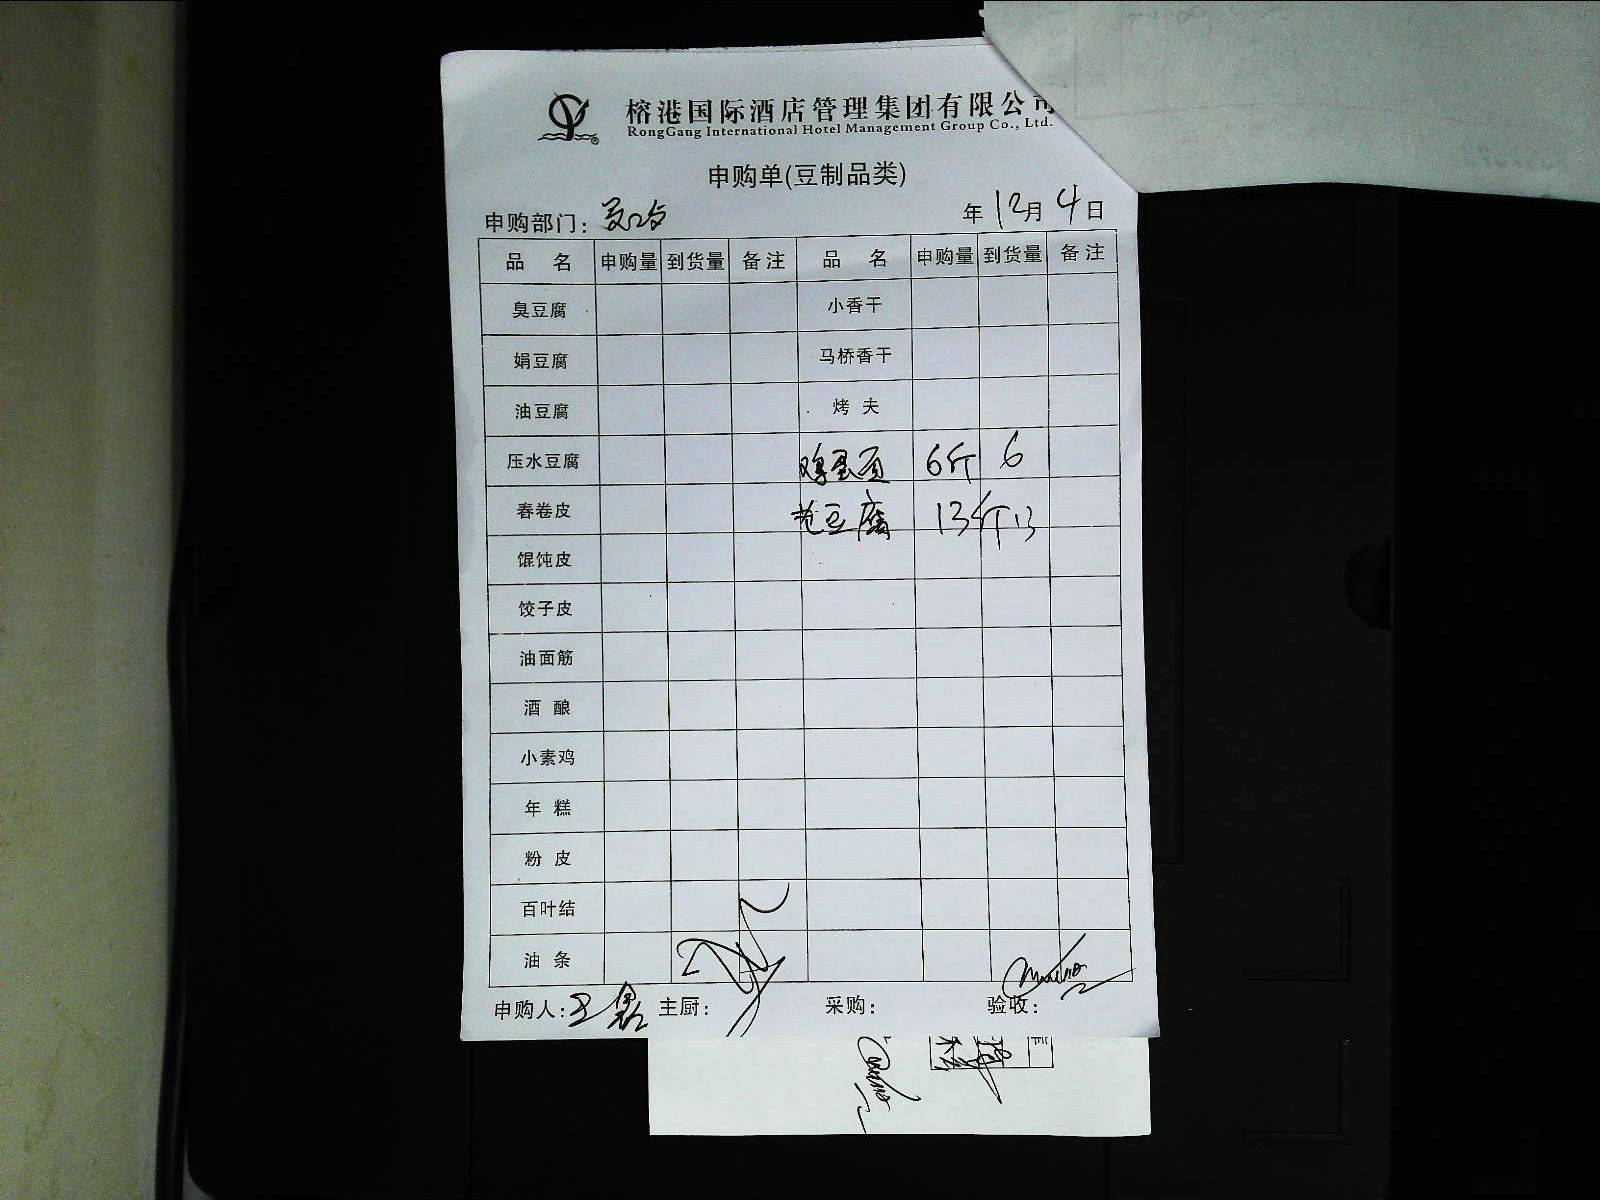 榕港国际酒店管理集团有限公司
RongGang International Hotel Management Group Co., Ltd.
申购单(豆制品类)
申购部门: 年 12月 4日
品 名 申购量 到货量 备注 品 名 申购量 到货量 备注
臭豆腐 小香干
娟豆腐 马桥香干
油豆腐 烤 夫
压水豆腐 6斤 6
春卷皮 豆腐 13斤 13
馄饨皮
饺子皮
油面筋
酒 酿
小素鸡
年 糕
粉 皮
百叶结
油 条
申购人: 主厨: 采购: 验收: